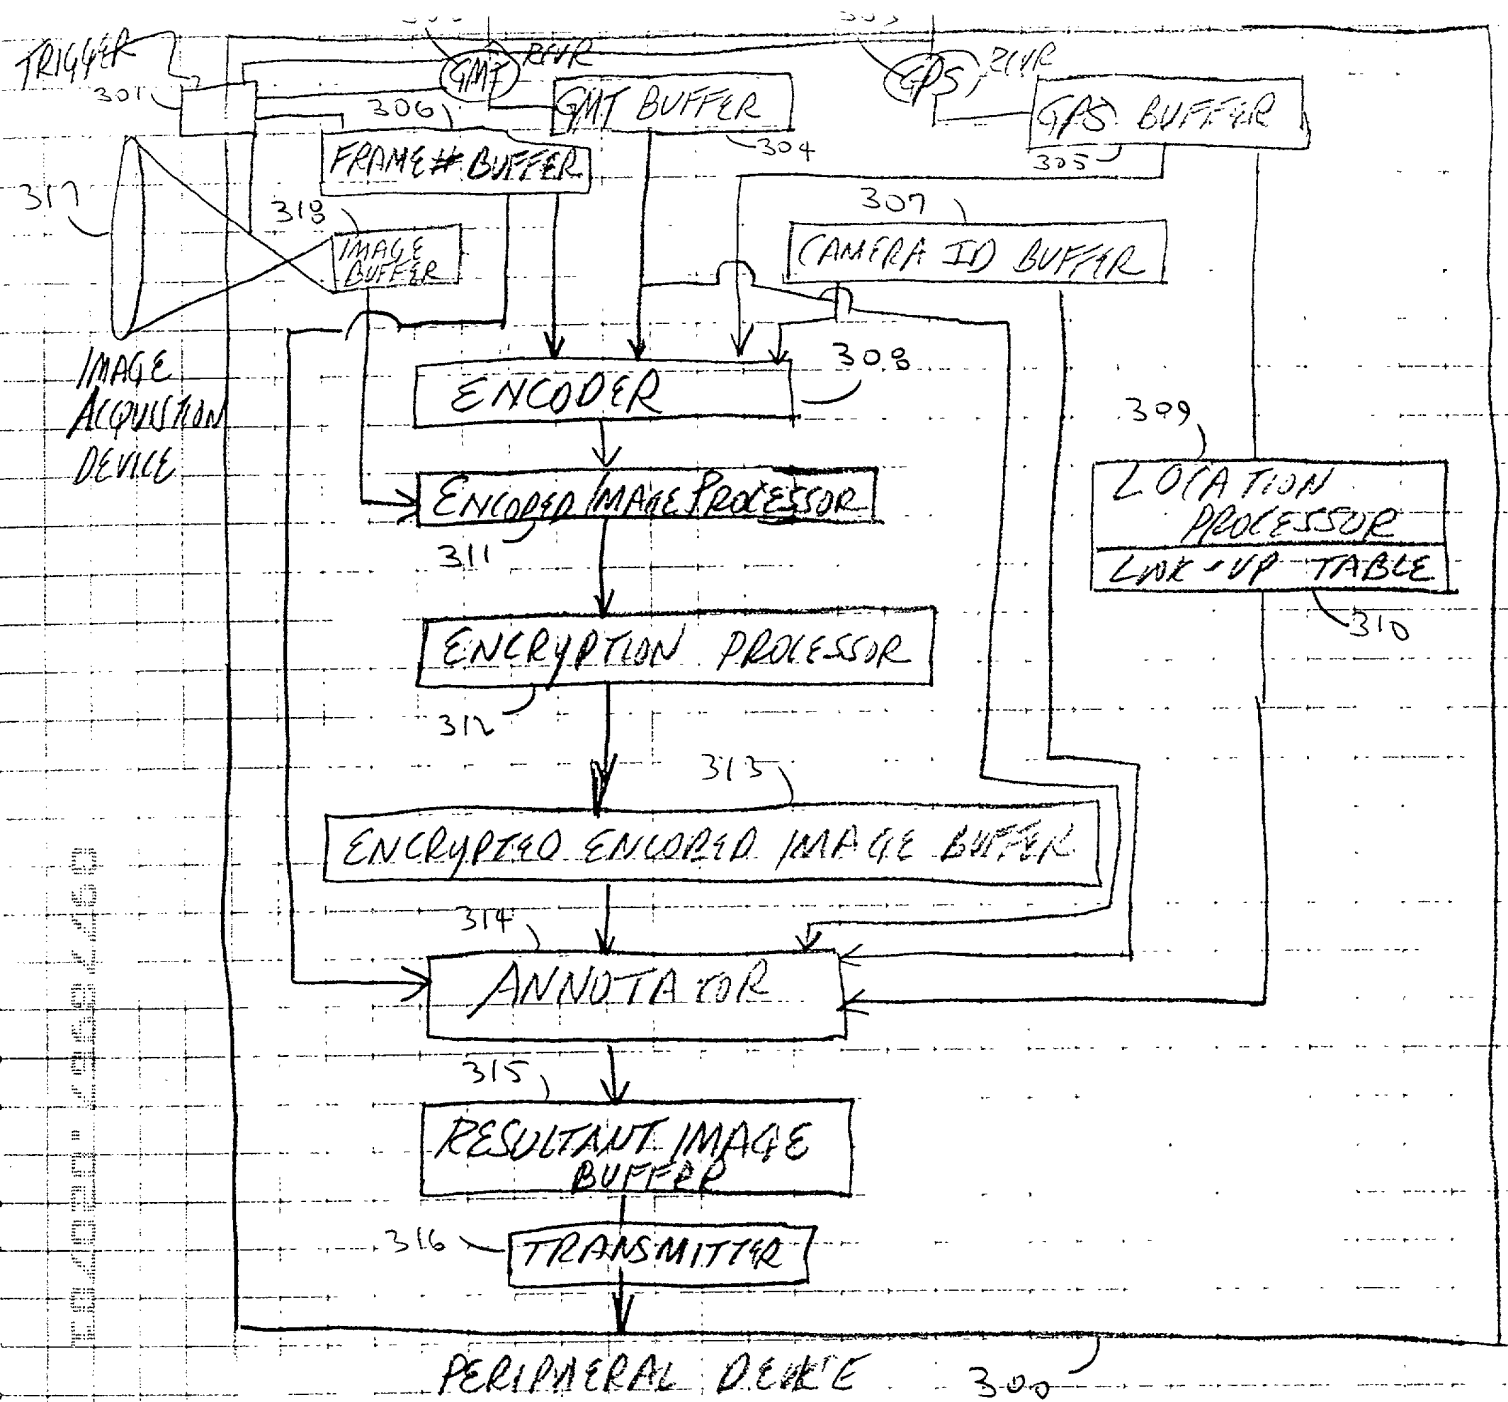 TRIGGER
301
303
GMT RCVR
GPS RCVR
306
GMT BUFFER
304
GPS BUFFER
305
FRAME # BUFFER
317
318
IMAGE
BUFFER
307
CAMERA ID BUFFER
IMAGE
ACQUISTION
DEVICE
ENCODER
308
309
ENCODED IMAGE PROCESSOR
311
LOCATION
PROCESSOR
LOOK-UP TABLE
310
ENCRYPTION PROCESSOR
312
313
ENCRYPTED ENCODED IMAGE BUFFER
314
ANNOTATOR
315
RESULTANT IMAGE
BUFFER
316
TRANSMITTER
PERIPHERAL DEVICE
300